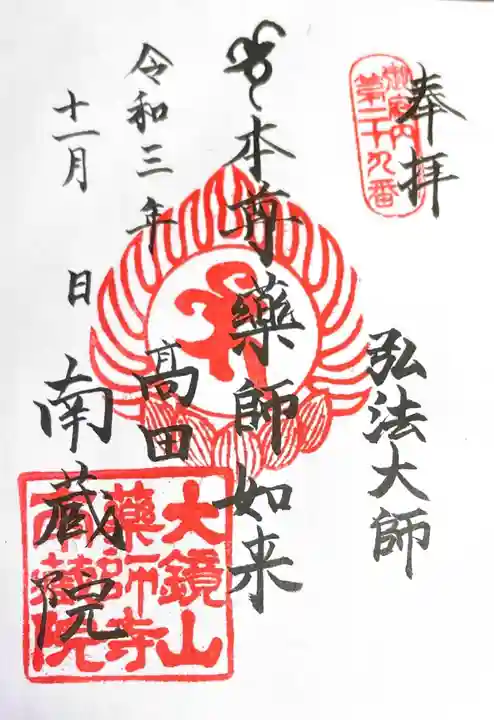 奉拝
御府内
第二十九番
弘法大師
本尊薬師如来
令和三年
十一月 日
高田
南蔵院
大鏡山
薬師寺
南蔵院